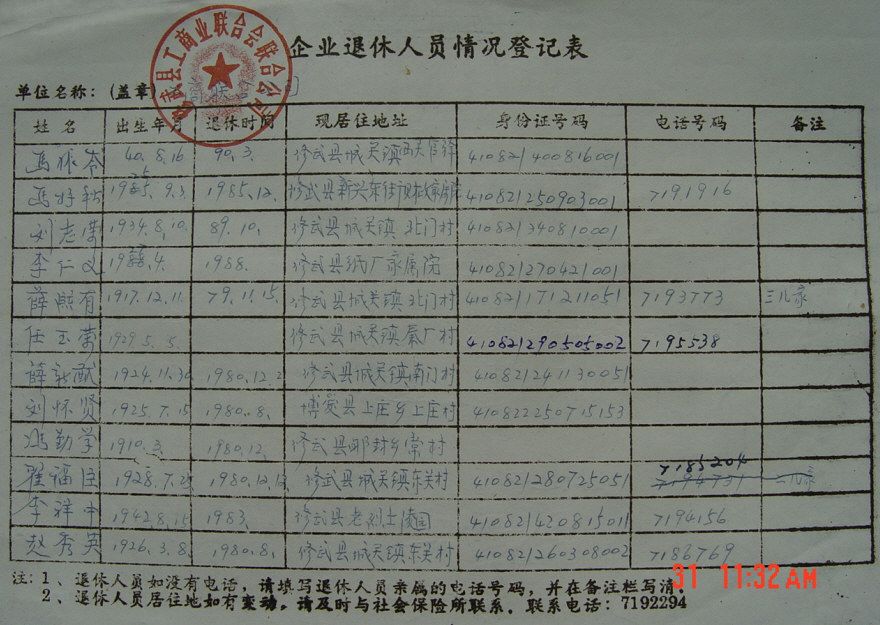 企业退休人员情况登记表
单位名称：(盖章)
县工商业联合会联合公司
姓名 出生年月 退休时间 现居住地址 身份证号码 电话号码 备注
40.8.16 90.3. 修武县城关镇 410821400816001
冯好 9.3 1985.12. 修武县新兴东街 410821250903001 7191916
刘志 1934.8.10. 89.10. 修武县城关镇北门村 410821340810001
李仁义 4. 1988. 修武县纸厂家属院 410821270421001
薛熙有 1917.12.11. 79.11.15. 修武县城关镇北门村 410821171211051 7193773 三儿家
任玉 1929.5.5. 修武县城关镇 厂村 410821290505002 7195538
薛 1924.11.30 1980.12.2 修武县城关镇南门村 410821241130051
刘怀贤 1925.7.15 1980.8. 博爱县上庄乡上庄村 410822250715153
冯勤学 1910.3. 1980.12. 修武县 封乡常村
7185204
福 1928.7.25 1980.12.12 修武县城关镇东关村 410821280725051 7194731 二儿家
李祥中 1942.8.15 1983. 修武县老烈士陵园 410821420815011 7194156
赵秀英 1926.3.8. 1980.8. 修武县城关镇东关村 410821260308002 7186769
注：1、退休人员如没有电话，请填写退休人员亲属的电话号码，并在备注栏写清。
2、退休人员居住地如有变动，请及时与社会保险所联系。联系电话：7192294
31 11:32 AM